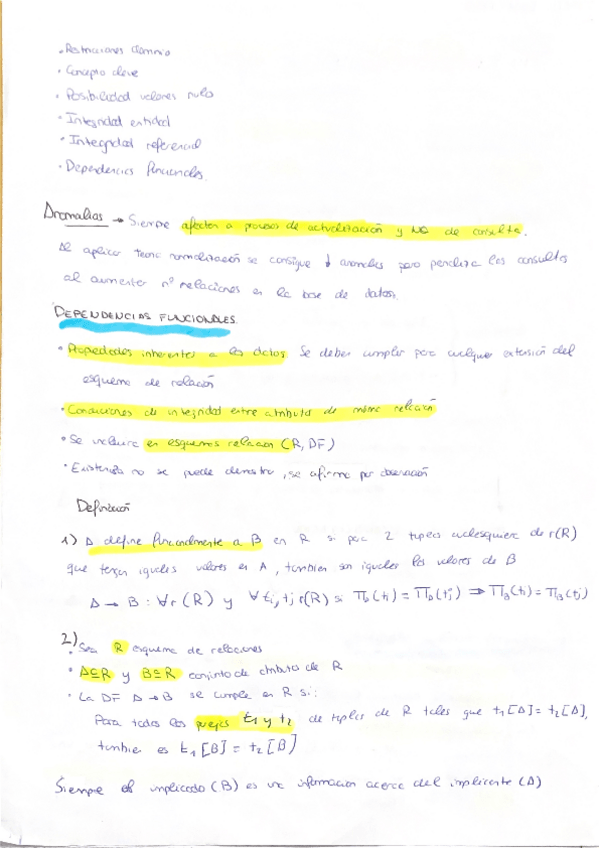 · Restricciones dominio
· Concepto clave
· Posibilidad valores nulo
· Integridad entidad
· Integridad referencial
· Dependencias funcionales.
Anomalias → Siempre afectan a proceso de actualización y NO de consulta.
Al aplicar teoria normalización se consigue ↓ anomalias pero penaliza las consultas
al aumentar nº relaciones en la base de datos.
DEPENDENCIAS FUNCIONALES.
· Propiedades inherentes a los datos. Se deben cumplir para cualquier extensión del
esquema de relación
· Condiciones de integridad entre atributos de misma relación
· Se incluire en esquemas relacion (R, DF)
· Existencia no se puede demostrar, se afirma por observación
Definición
1) A define funcionalmente a B en R si para 2 tuplas cualesquiera de r(R)
que tengan iguales valores en A, tambien son iguales los valores de B
A → B : ∀r (R) y ∀ti, tj r(R) si ΠA(ti) = ΠA(tj) ⇒ ΠB(ti) = ΠB(tj)
2)
· Sea R esquema de relaciones
· A⊆R y B⊆R conjunto de atributos de R
· La DF A → B se cumple en R si:
Para todos los parejas t1 y t2 de tuplas de R tales que t1[A] = t2[A],
tambien es t1[B] = t2[B]
Siempre el implicado (B) es una informacion acerca del implicante (A)